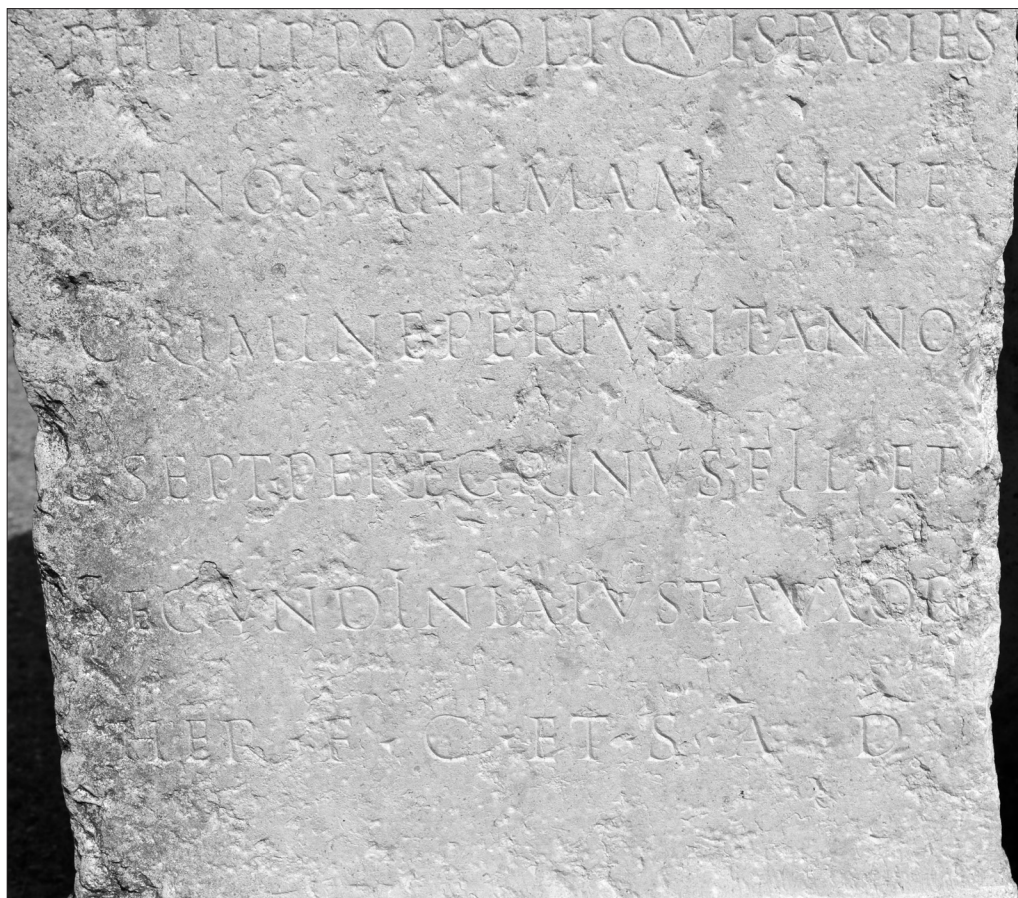 PHILIPPOPOLI·QVI SEXSIES
DENOS·ANIMAM·SINE
CRIMINE PERTVLIT·ANNO
SEPT·PEREGRINVS·FIL·ET
SECVNDINIA IVSTA VXOR
HER·F·C·ET·S·A·D